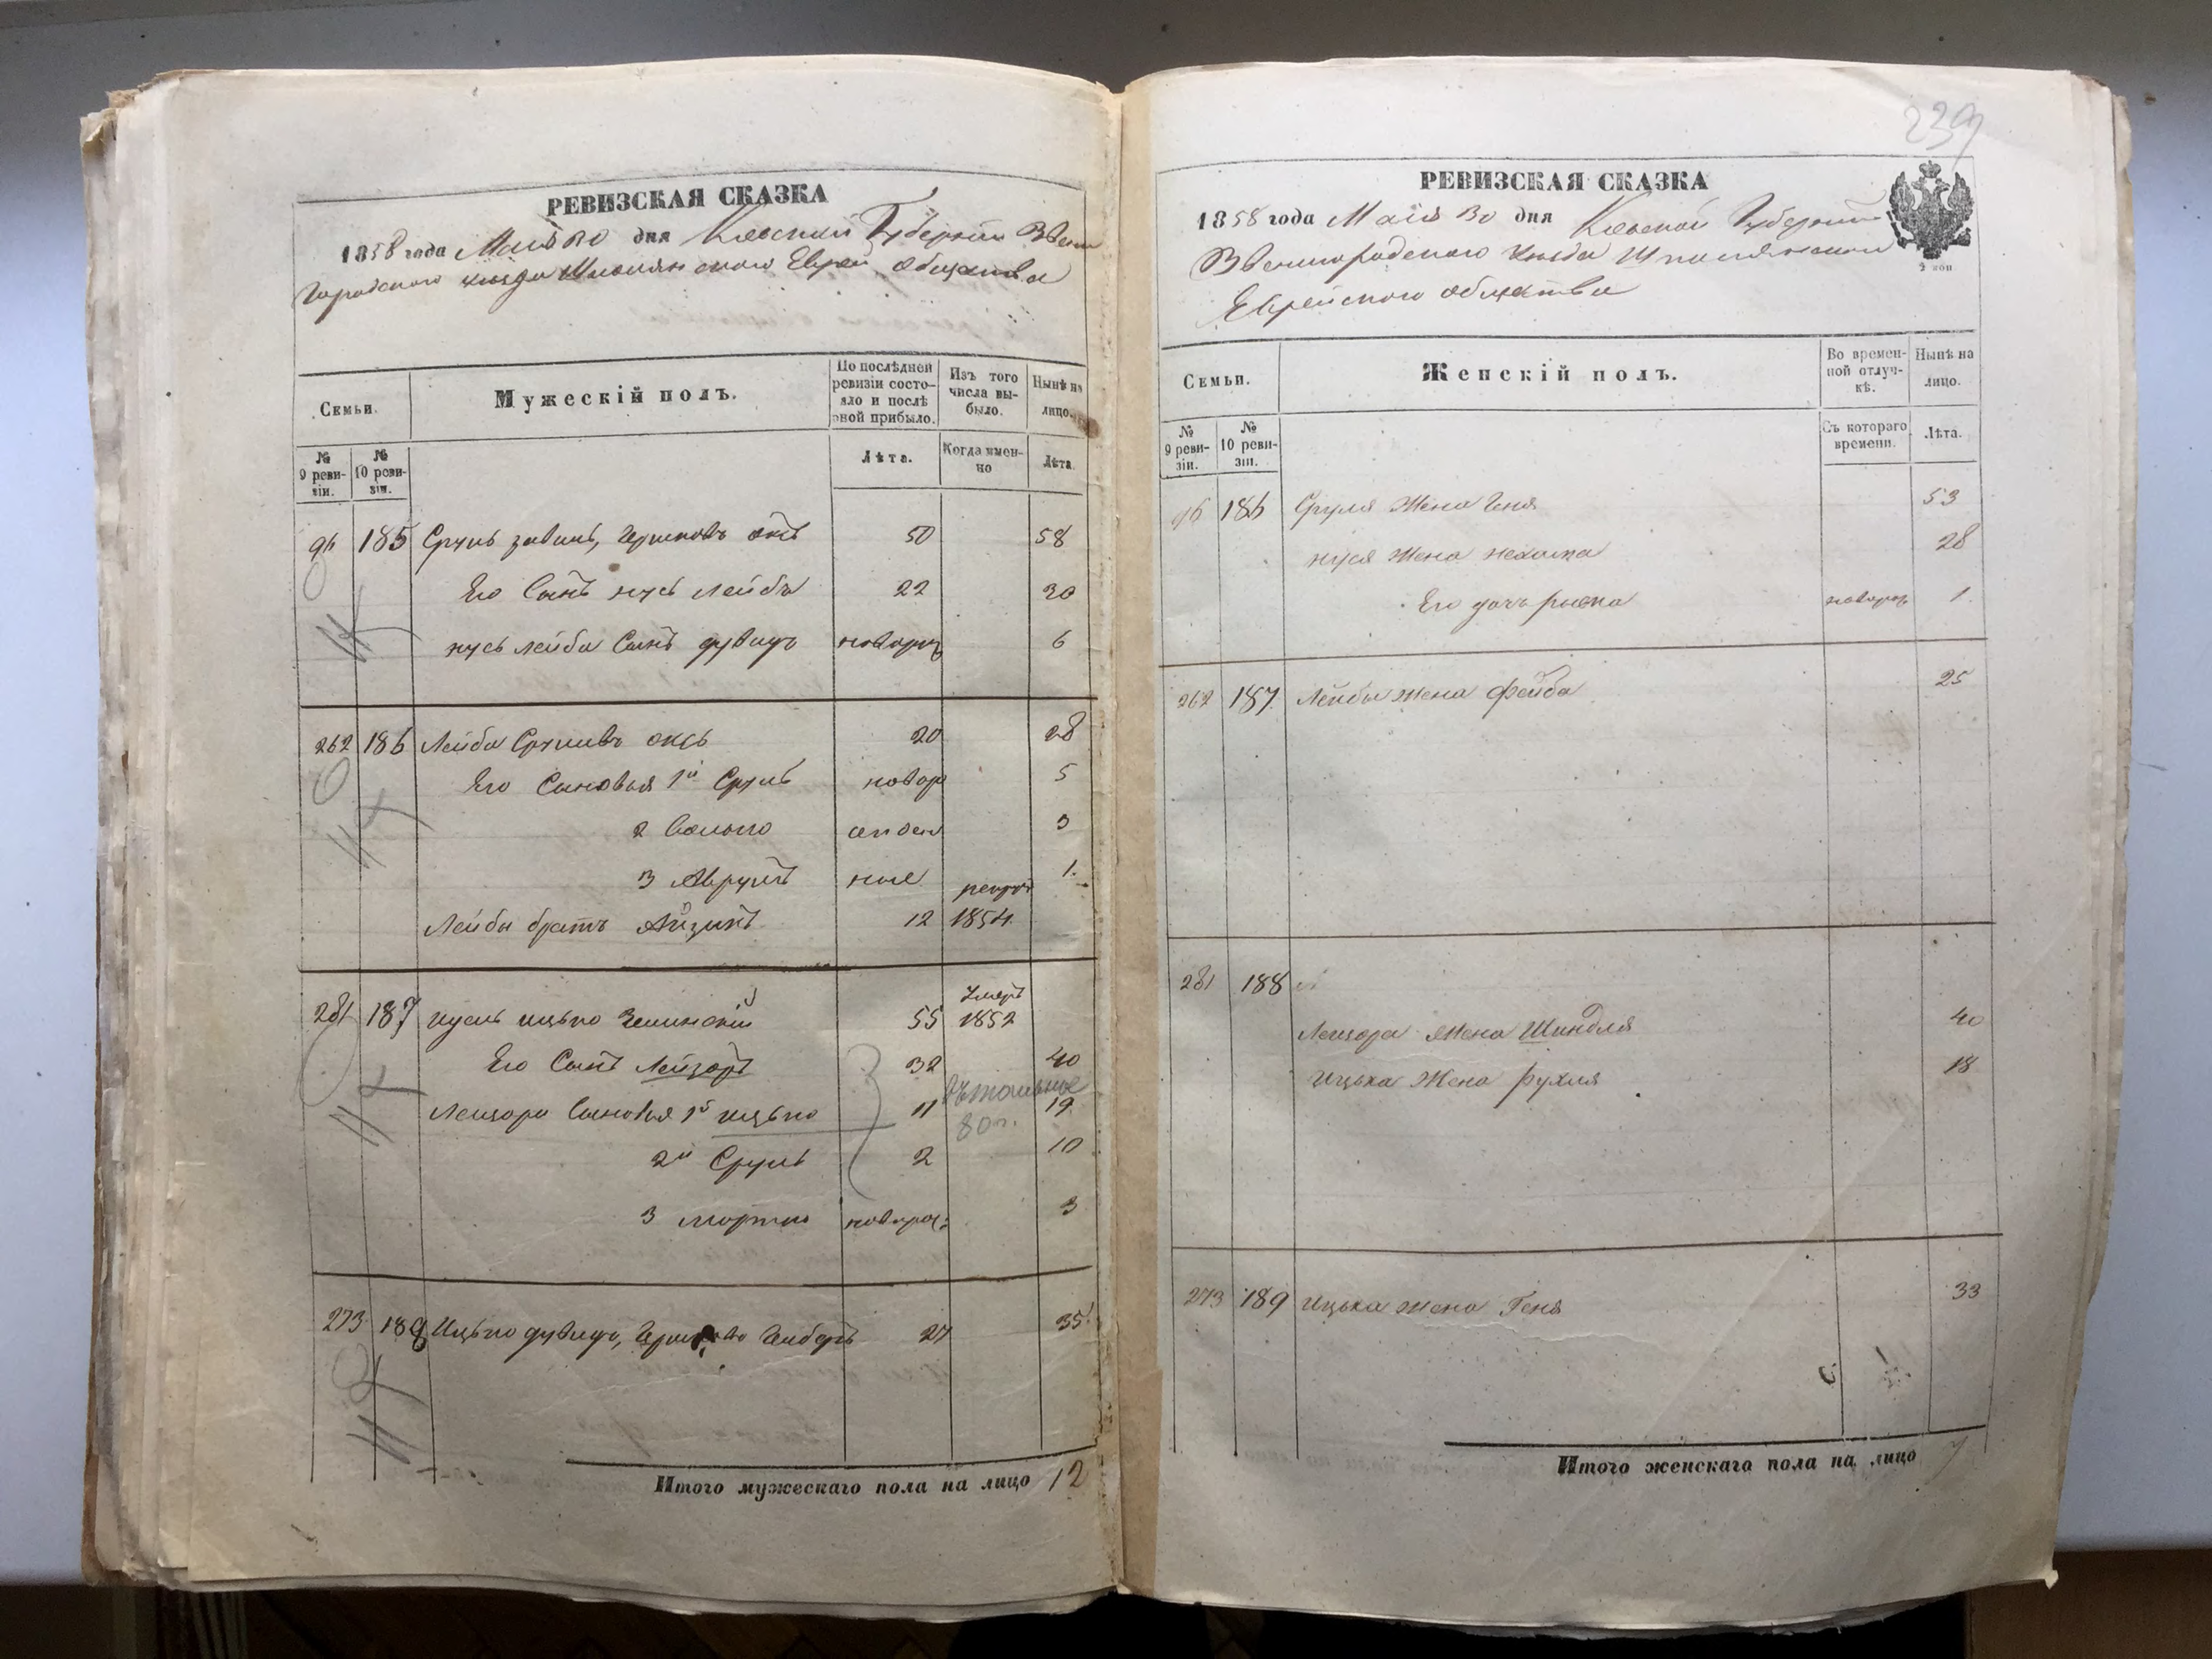 РЕВИЗСКАЯ СКАЗКА
1858 года Маія 30 дня Кіевской Губерніи Звени
городского уезда Шполянского Еврей. общества
Семьи.
Мужескій полъ.
По послѣдней ревизіи состояло и послѣ оной прибыло.
Изъ того числа выбыло.
Нынѣ на лицо.
№ 9 ревизіи.
№ 10 ревизіи.
Лѣта.
Когда именно
Лѣта.
96 185 Сруль 50 58
Его Сынъ нусь Лейба 22 30
нусь Лейбы Сынъ дувидъ новорож 6
262 186 Лейба 20 28
Его Сыновья 1й Сруль новор 5
2 3
3 Аврумъ ные 1.
Лейбы братъ Айзикъ 12 рекрут 1854
281 187 ицько 55 Умеръ 1852
Его Сынъ Лейзоръ 32 40
Лейзора Сыновья 1й ицько 11 19
80 г.
2й Сруль 2 10
3 мортко новорож: 3
273 188 Ицько дувидъ, 27 35
Итого мужескаго пола на лицо 12
239
РЕВИЗСКАЯ СКАЗКА
1858 года Маія 30 дня Кіевской Губерніи
Звенигородского уезда Шполянского
Еврейского общества
2 коп
Семьи.
Женскій полъ.
Во временной отлучкѣ.
Нынѣ на лицо.
№ 9 ревизіи.
№ 10 ревизіи.
Съ котораго времени.
Лѣта.
96 186 Сруля Жена Геня 53
нуся Жена нехама 28
Его дочь новорож 1
262 187 Лейбы жена Фейга 25
281 188
Лейзора Жена Шиндля 40
Ицька Жена рухля 18
273 189 Ицька жена Геня 33
Итого женскаго пола на лицо 7